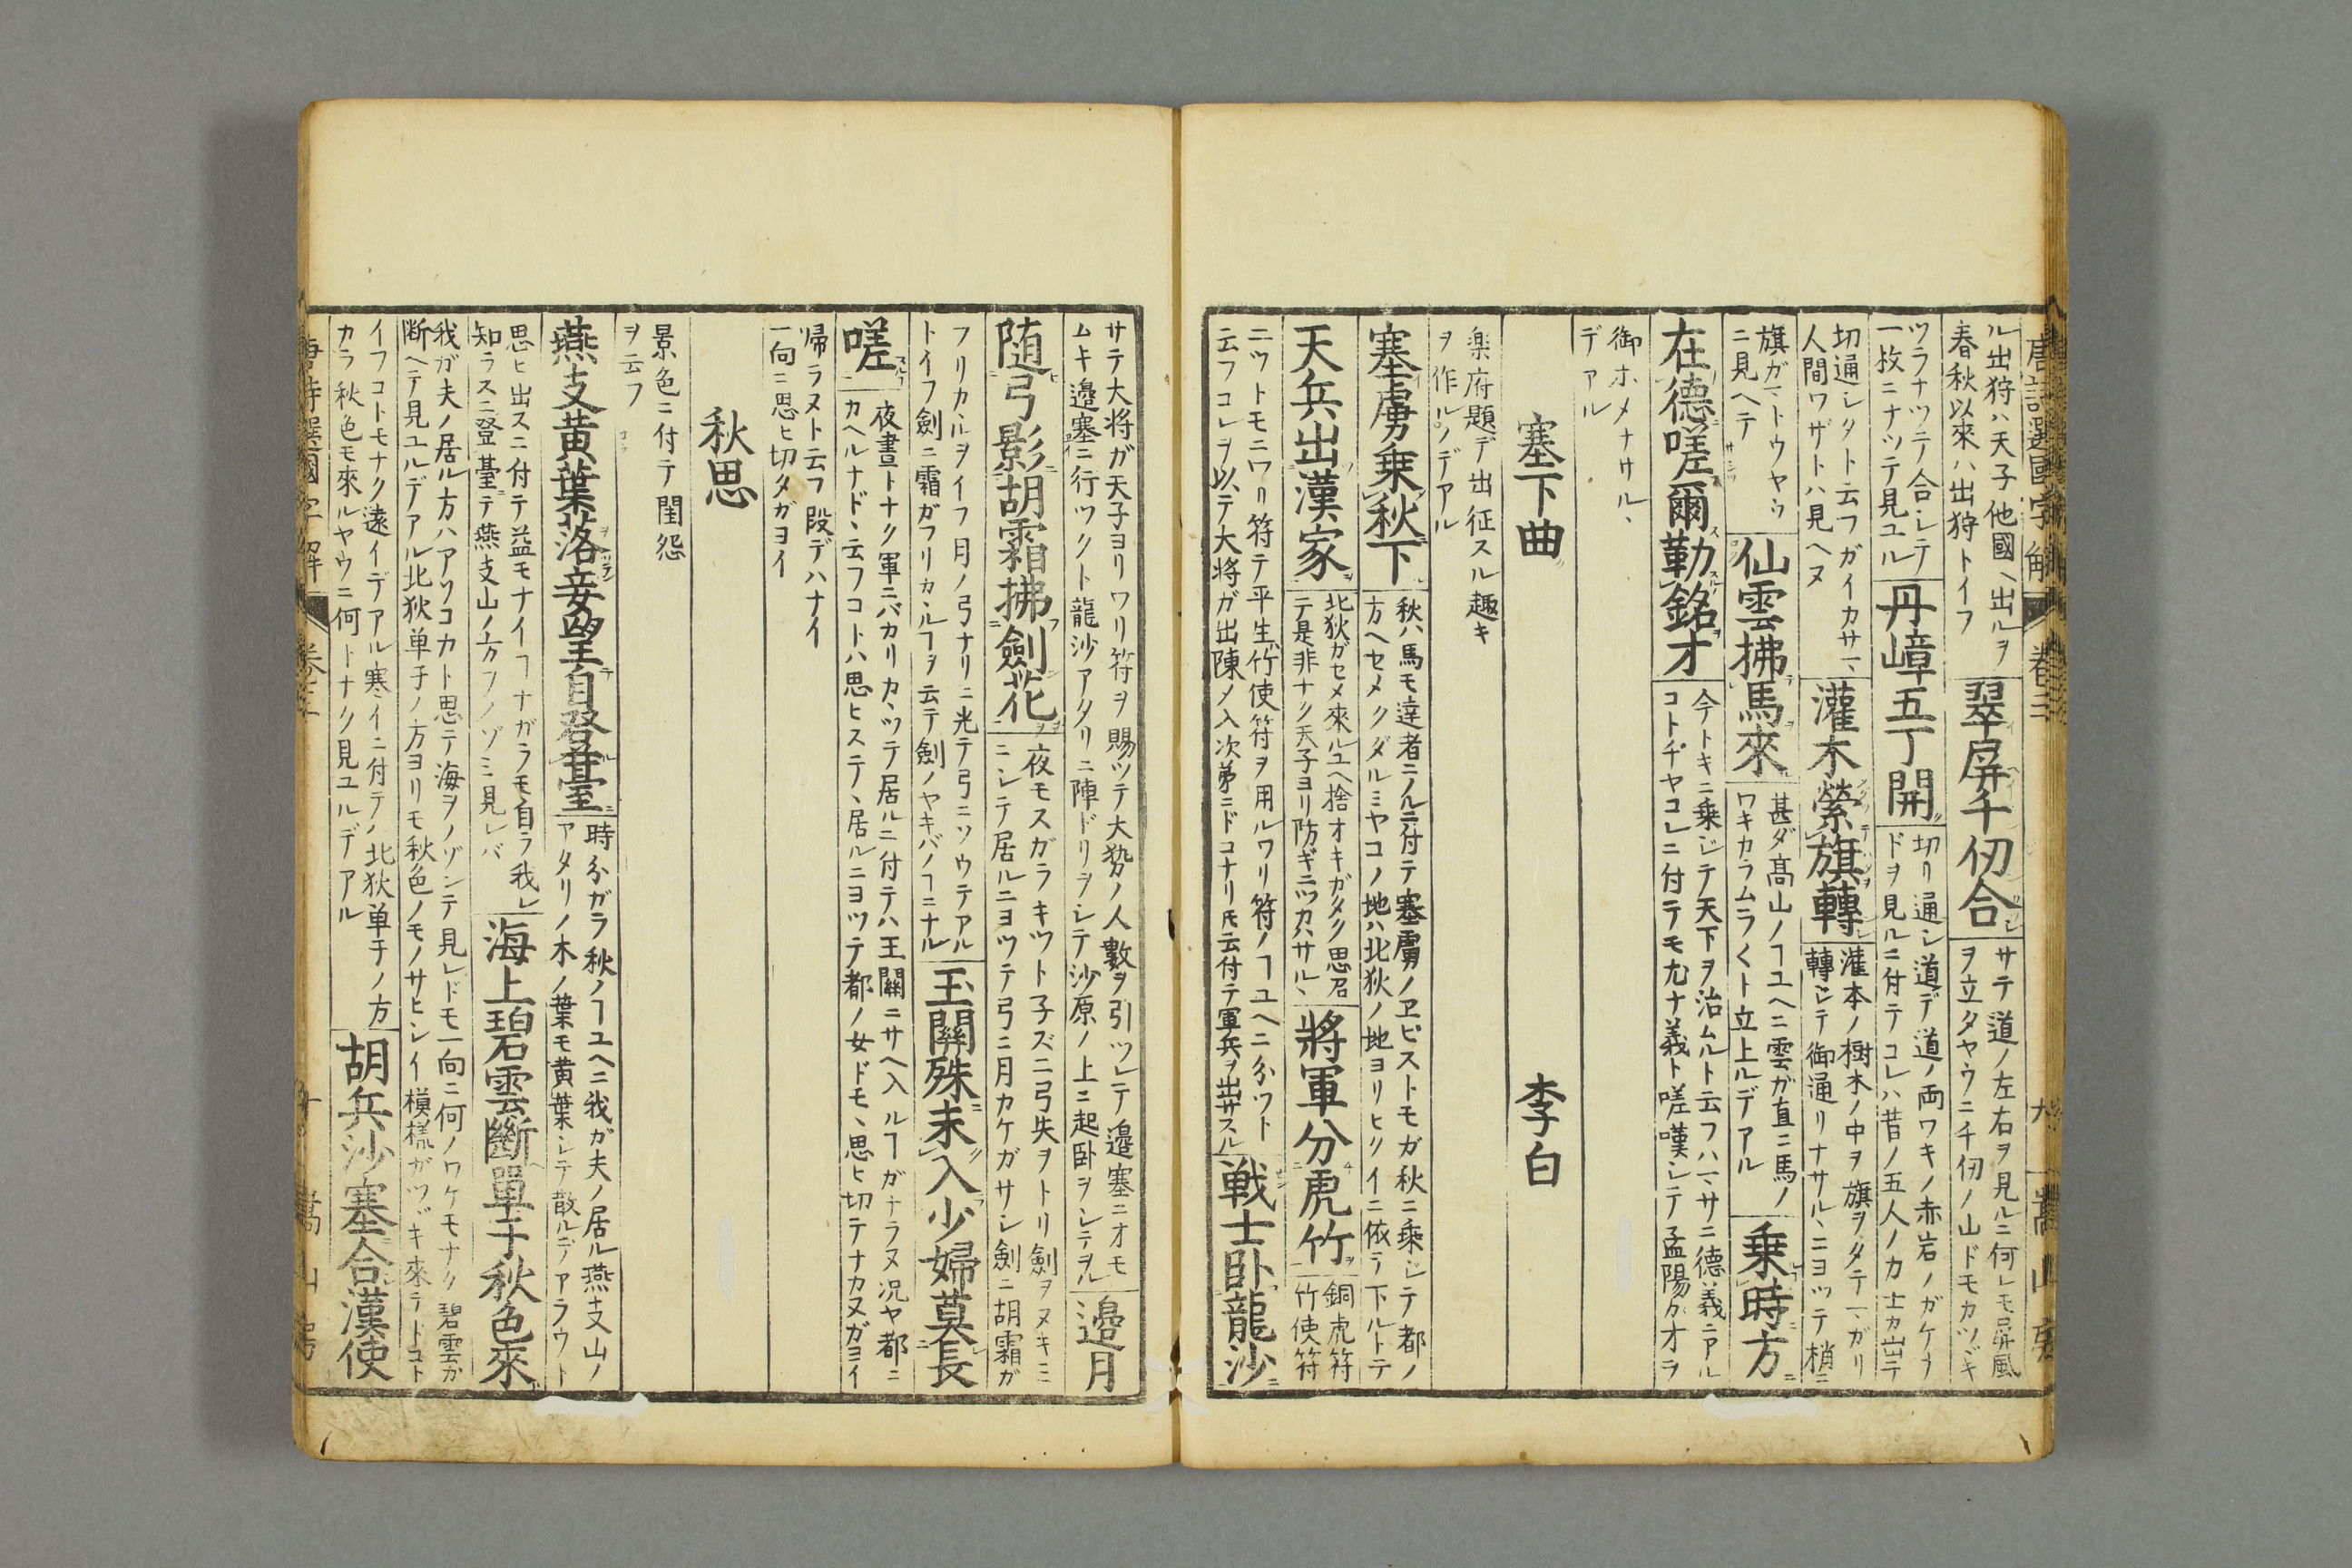 唐詩選國字解 卷三 九 嵩山房
ル出狩ハ天子他國ヘ出ルヲ
春秋以來ハ出狩トイフ
翠屏千仞合
サテ道ノ左右ヲ見ルニ何レモ屏風
ヲ立タヤウニ千仞ノ山ドモカツヾキ
ツラナツテ合レテ
一枚ニナツテ見ユル
丹嶂五丁開
切リ通シ道デ道ノ両ワキノ赤岩ノガケナ
ドヲ見ルニ付テコレハ昔ノ五人ノ力士カ出テ
切通シタト云フガイカサマ、
人間ワザトハ見ヘヌ
灌木縈旗轉
灌本ノ樹木ノ中ヲ旗ヲタテマガリ
轉シテ御通リナサル、ニヨツテ梢ニ
旗ガマトウヤウ
ニ見ヘテ
仙雲拂馬來
甚ダ髙山ノヿユヘニ雲ガ直ニ馬ノ
ワキカラムラ〱ト立上ルデアル
乗時方
在德嗟爾勒銘才
今トキニ乗ジテ天下ヲ治ムルト云フハマサニ德義ニアル
コトヂヤコレニ付テモ尤ナ義ト嗟嘆シテ孟陽ガオヲ
御ホメナサル、
デアル
塞下曲 李白
楽府題デ出征スル趣キ
ヲ作ルノデアル
塞虜乗秋下
秋ハ馬モ達者ニノルニ付テ塞虜ノヱビストモガ秋ニ乗ジテ都ノ
方ヘセメクダルミヤコノ地ハ北狄ノ地ヨリヒクイニ依ラ下ルトテ
天兵出漢家
北狄ガセメ來ルユヘ捨オキガタク思召
テ是非ナク天子ヨリ防ギニツカハサル、
將軍分虎竹
銅虎符
竹使符
ニツトモニワリ符テ平生竹使符ヲ用ルワリ符ノヿユヘニ分ワト
云フコレヲ以テ大将ガ出陳ノ入次第ニドコナリ𪜈云付テ軍兵ヲ出サスル
戦士卧龍沙
サテ大将ガ天子ヨリワリ符ヲ賜ツテ大勢ノ人數ヲ引ツレテ邉塞ニオモ
ムキ邉塞ニ行ツクト龍沙アタリニ陣ドリヲシテ沙原ノ上ニ起卧ヲシテヲル
邉月
随弓影胡霜拂劍花
夜モスガラキツト子ズニ弓矢ヲトリ劍ヲヌキミ
ニシテ居ルニヨツテ弓ニ月カケガサシ劍ニ胡霜ガ
フリカヽルヲイフ月ノ弓ナリニ光テ弓ニソウテアル
トイフ劍ニ霜ガフリカヽルヿヲ云テ劍ノヤキバノヿニナル
玉關殊未入少婦莫長
嗟
夜晝トナク軍ニバカリカヽツテ居ルニ付テハ玉關ニサヘ入ルヿガナラヌ況ヤ都ニ
カヘルナド、云フコトハ思ヒステヽ居ルニヨツテ都ノ女ドモ、思ヒ切テナカヌガヨイ
帰ラヌト云フ段デハナイ
一向ニ思ヒ切タガヨイ
秋思
景色ニ付テ閨怨
ヲ云フ
燕支黄葉落妾望自登臺
時分ガラ秋ノヿユヘニ我ガ夫ノ居ル燕支山ノ
アタリノ木ノ葉モ黄葉シテ散ルデアラウト
思ヒ出スニ付テ益モナイヿナガラモ自ラ我レ
知ラスニ登臺テ燕支山ノ方ヲノゾミ見レバ
海上碧雲斷單于秋色來
我ガ夫ノ居ル方ハアソコカト思テ海ヲノゾンテ見レドモ一向ニ何ノワケモナク碧雲ガ
断ヘテ見ユルデアル北狄単于ノ方ヨリモ秋色ノモノサヒシイ横様ガツヾキ來テドコト
イフコトモナク遠イデアル寒イニ付テノ北狄単于ノ方
カラ秋色モ來ルヤウニ何トナク見ユルデアル
胡兵沙塞合漢使
唐詩選國字解 卷三 十 嵩山房